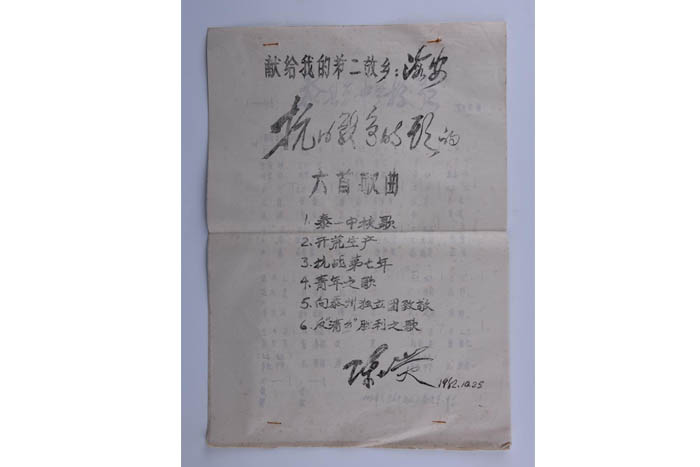 献给我的第二故乡：海安
抗日战争时期的
六首歌曲
1. 泰一中校歌
2. 开荒生产
3. 抗战第七年
4. 青年之歌
5. 向泰州独立团致敬
6. 反“清乡”胜利之歌
1982.10.25